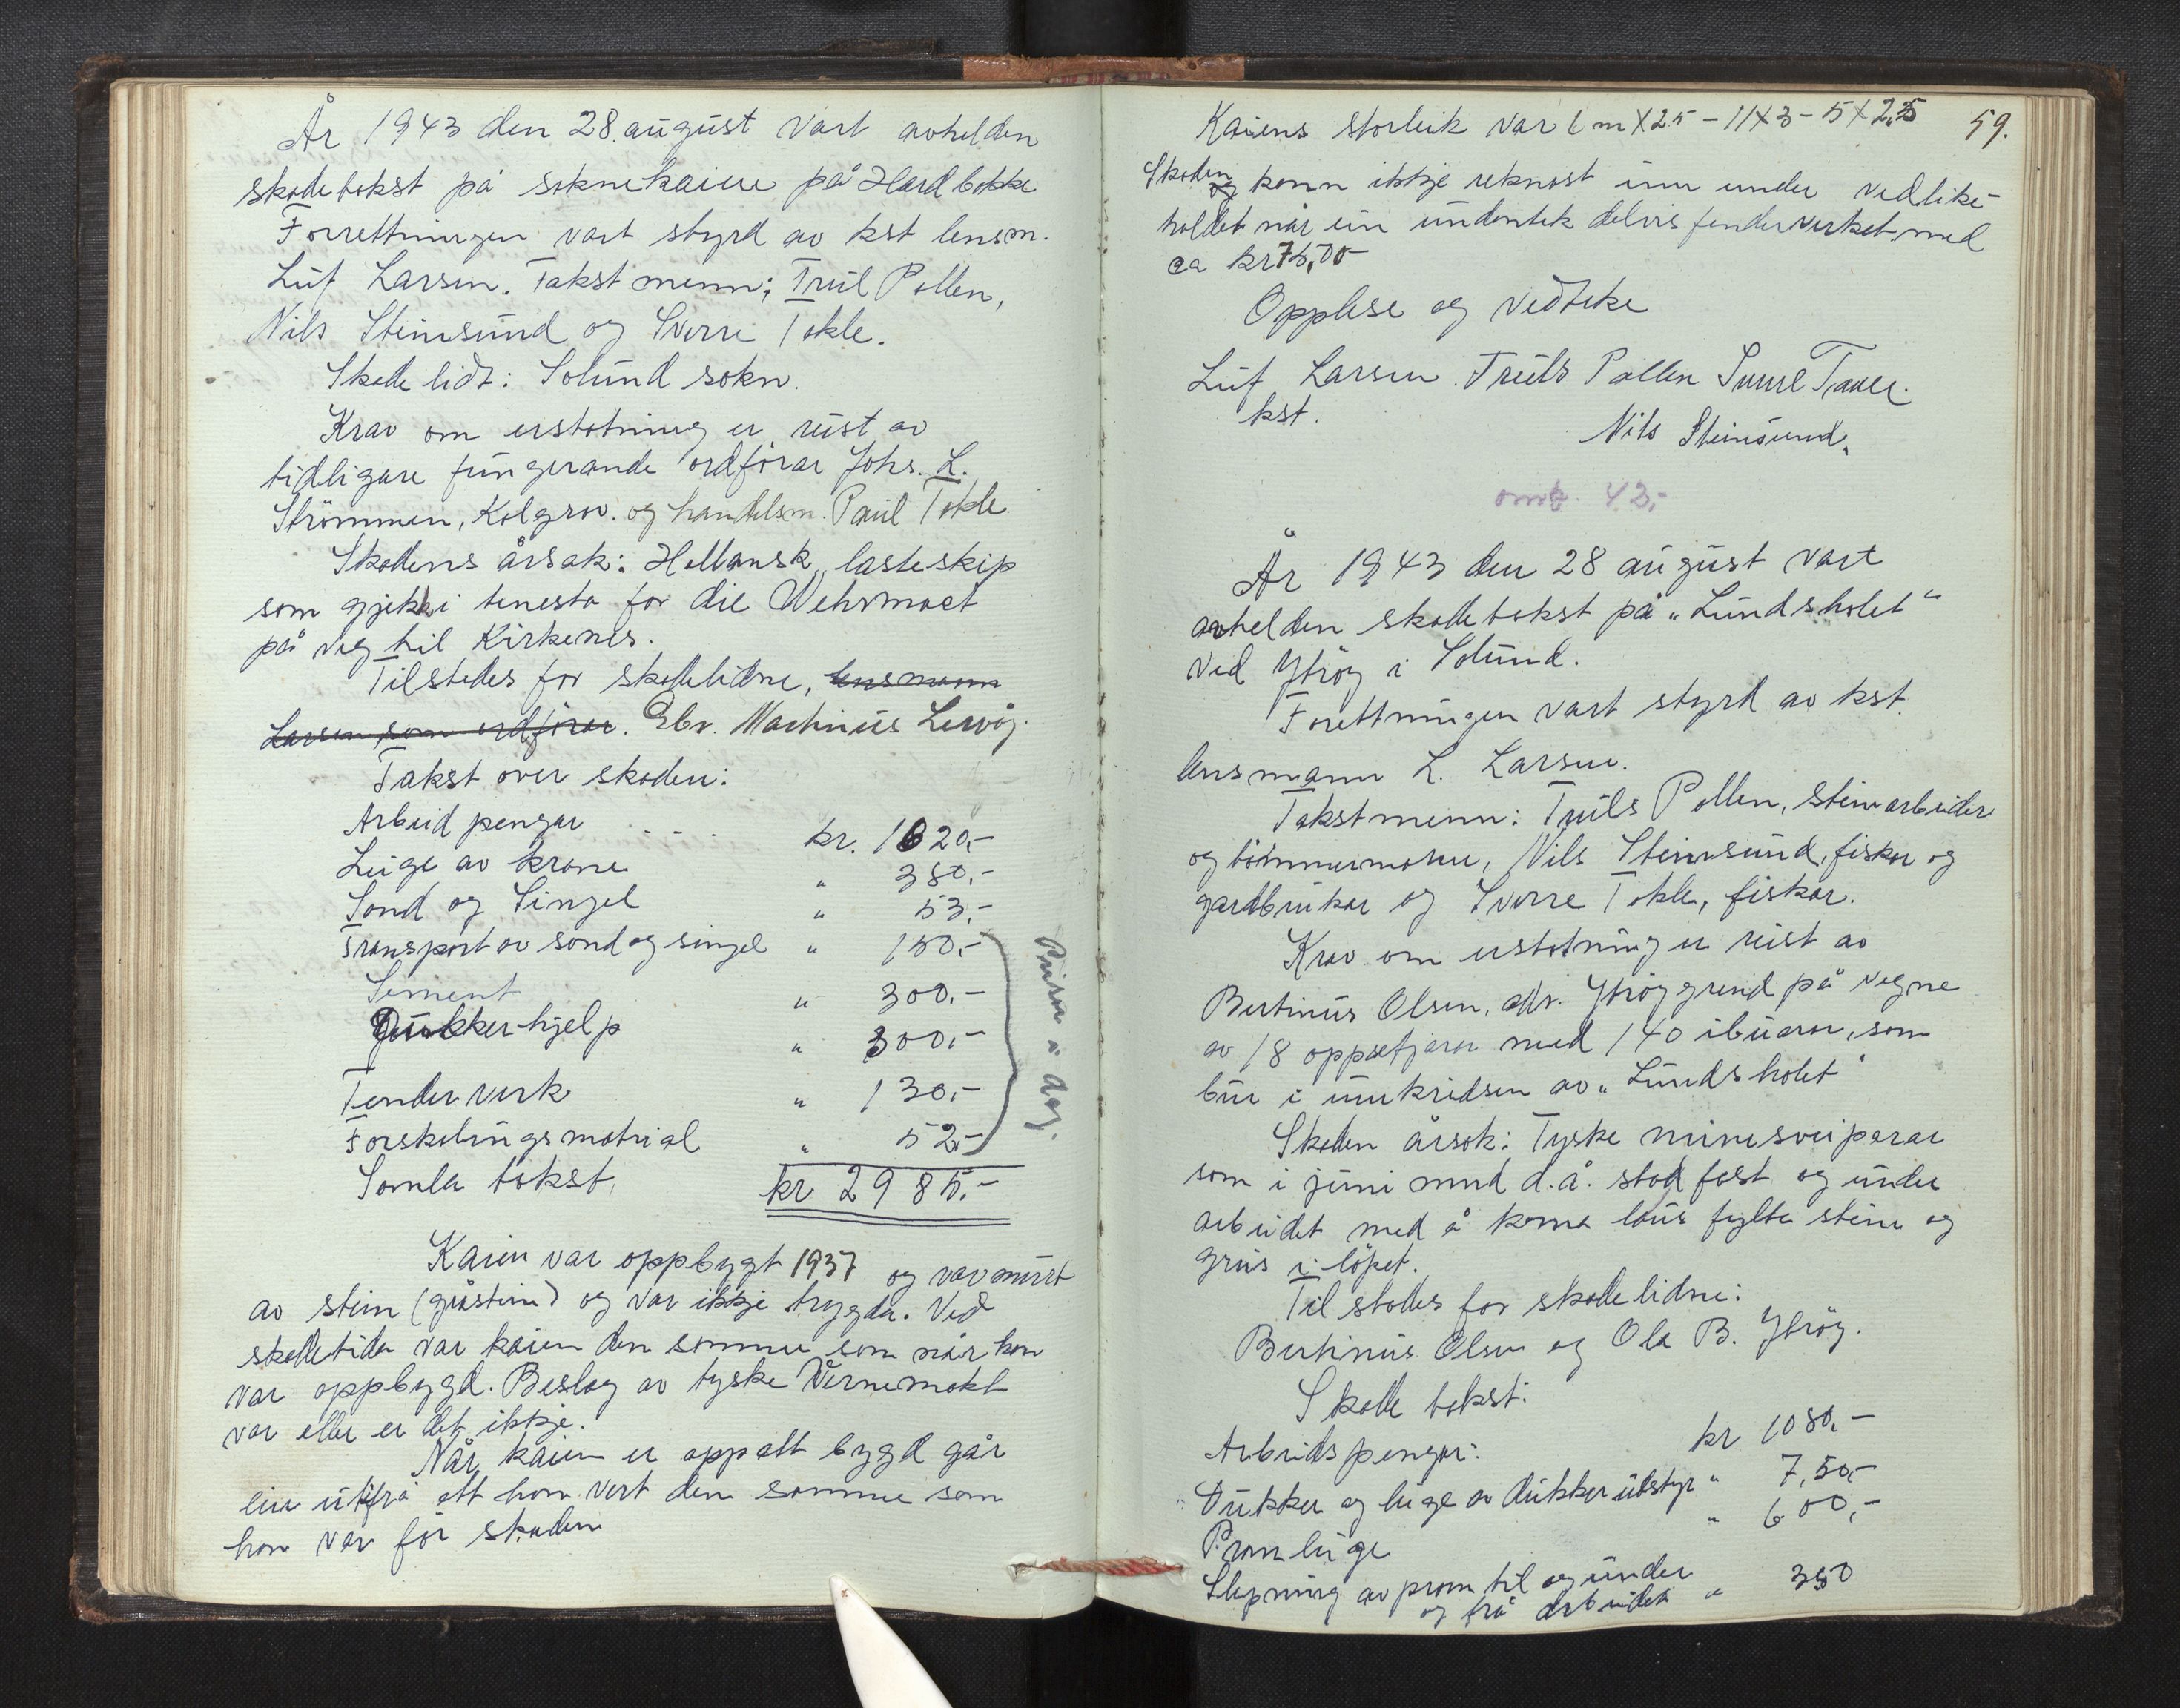 År 1943 den 28. august vart avhelden
skadetakst på soknekaien på Hardbakke
Forrettningen vart styrd av kst lensm.
Leif Larsen. Takstmenn: Truls Pollen,
Nils Steinsund og Sverre Takle.
Skadelidt: Solund sokn.
Krav om erstatning er reist av
tidligare fungerande ordförar Johs. L.
Strömmen, Kolgrov. og handelsm. Paul Takle
Skadens årsak: Hollansk lasteskip
som gjekk i tenesta for die Wehrmact
på veg til Kirkenes.
Tilstedes for skadelidne, lensmann
Larsen som ordförar. Gbr. Martinus Lervåg.
Takst over skaden:
Arbeid pengar . . . . kr. 1620,-
Leige av krane " 380,-
Sand og Singel " 53,-
Transport av sand og singel " 150,-
Sement " 300,-
Dukkerhjelp " 300,-
Fenderverk " 130,-
Forskalingsmatrial " 52,-
Prisen i dag.
Samla takst kr 2985,-
Kaien var oppbygt 1937 og var murt
av stein (gråstein) og var ikkje trygda. Ved
skadetida var kaien den samme som når han
var oppbygd. Beslag av tyske Vernemakt
var eller er det ikkje.
Når kaien er oppatt bygd går
ein utifrå att han vert den samme som
han var för skaden
59.
Kaiens storleik var 6 m X 2.5 - 11X3 - 5 X 2,5
Skaden kann ikkje reknast inn under vedlike-
holdet når ein undantek delvis fenderverket med
ca kr 75,00
Opplese og vedteke
Leif Larsen Truls Pollen Sverre Takle.
kst. Nils Steinsund.
omk. 42,-
År 1943 den 28 august vart
avhelden skadetakst på "Lundsholet"
ved Ytröy i Solund.
Forettningen vart styrd av kst.
lensmann L. Larsen.
Takstmenn: Truls Pollen, steinarbeider
og tömmermann, Nils Steinsund, fiskar og
gardbrukar og Sverre Takle, fiskar.
Krav om erstatning er reist av
Bertinus Olsen, adr. Ytröygrend på vegne
av 18 oppsetjarar med 140 ibuarar, som
bur i innkridsen av "Lundsholet"
Skaden årsok: Tyske minesveiparar
som i juni mnd d.å. stod fast og under
arbeidet med å koma laus fylte stein og
grus i löpet.
Til stades for skadelidne:
Bertinus Olsen og Ola B. Ytröy.
Skade takst:
Arbeidspengar: kr 1080,-
Dukker og leige av dukkerutstyr " 7,50,-
Pramleige " 600,-
Sleping av pram til og under
og frå arbeidet " 350